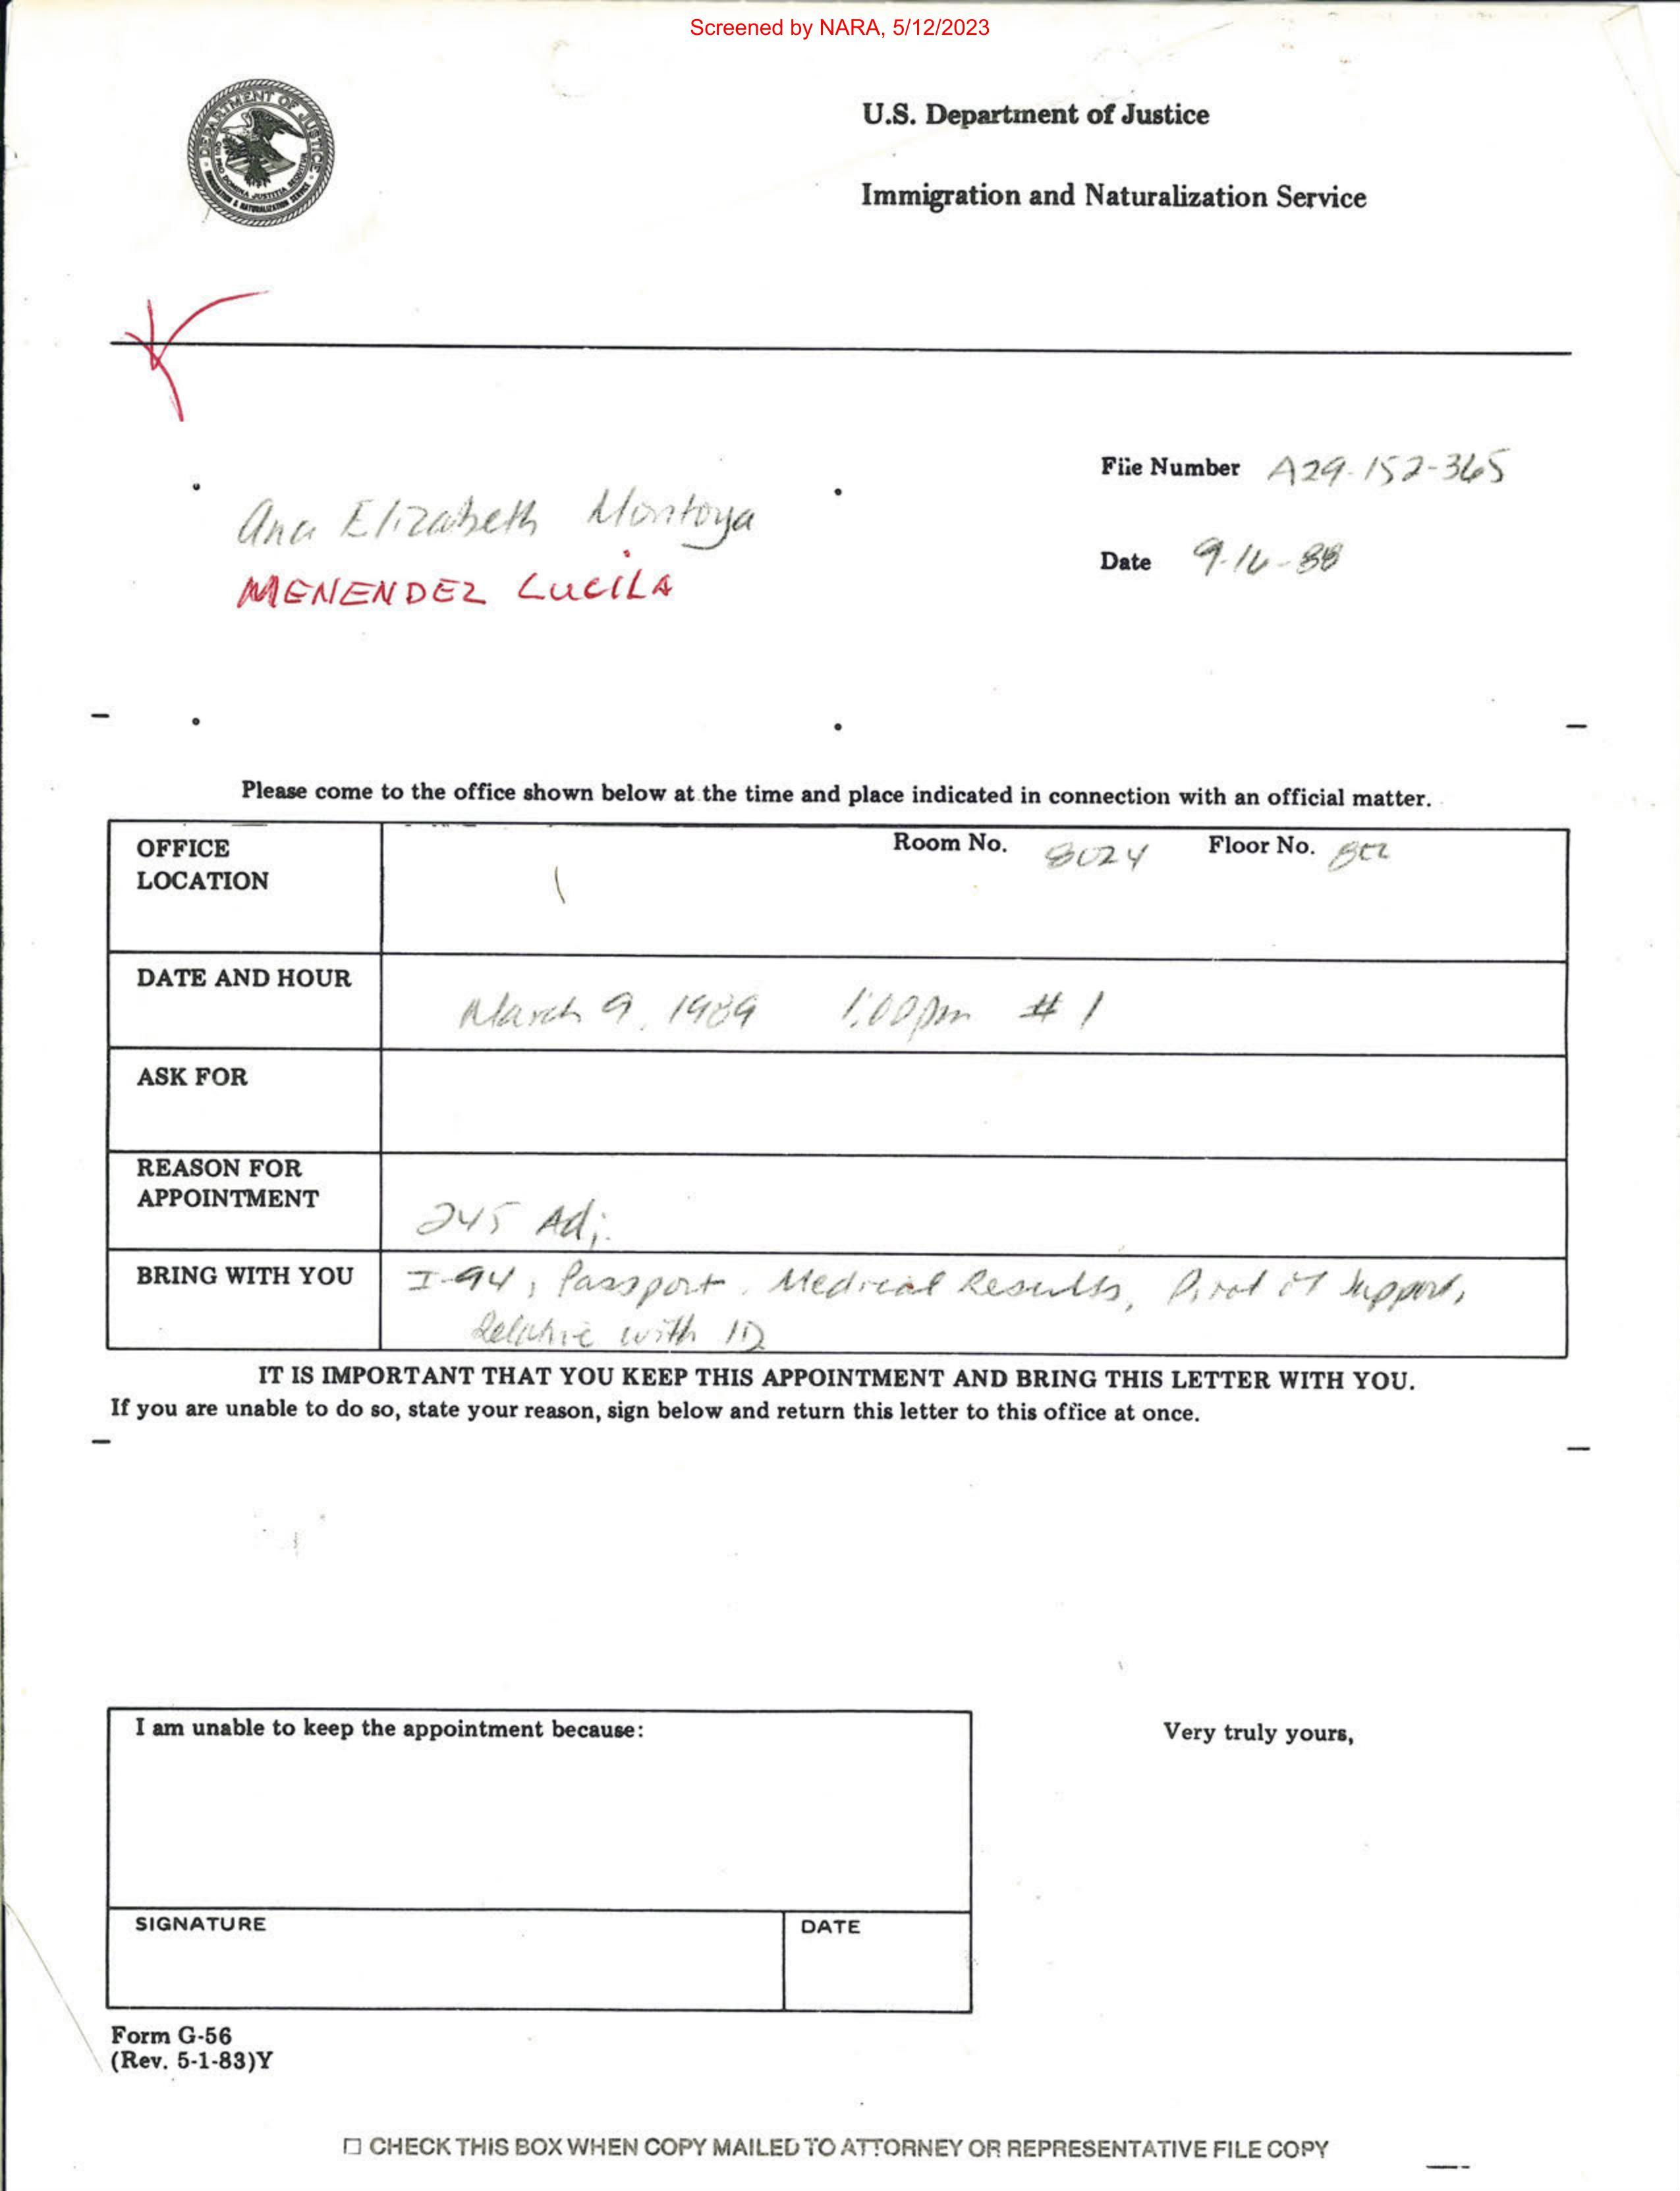 Screened by NARA, 5/12/2023
DEPARTMENT OF JUSTICE
QUI PRO DOMINA JUSTITIA SEQUITUR
IMMIGRATION & NATURALIZATION SERVICE
U.S. Department of Justice
Immigration and Naturalization Service
File Number A29-152-365
Ana Elizabeth Montoya
Date 9-16-88
MENENDEZ LUCILA
Please come to the office shown below at the time and place indicated in connection with an official matter.
OFFICE LOCATION Room No. 8024 Floor No. 8th
DATE AND HOUR March 9, 1989 1:00pm # 1
ASK FOR
REASON FOR
APPOINTMENT
245 Adj.
BRING WITH YOU I-94, Passport, Medical Results, Proof of Support,
Relative with ID
IT IS IMPORTANT THAT YOU KEEP THIS APPOINTMENT AND BRING THIS LETTER WITH YOU.
If you are unable to do so, state your reason, sign below and return this letter to this office at once.
I am unable to keep the appointment because:
Very truly yours,
SIGNATURE DATE
Form G-56
(Rev. 5-1-83)Y
☐ CHECK THIS BOX WHEN COPY MAILED TO ATTORNEY OR REPRESENTATIVE FILE COPY